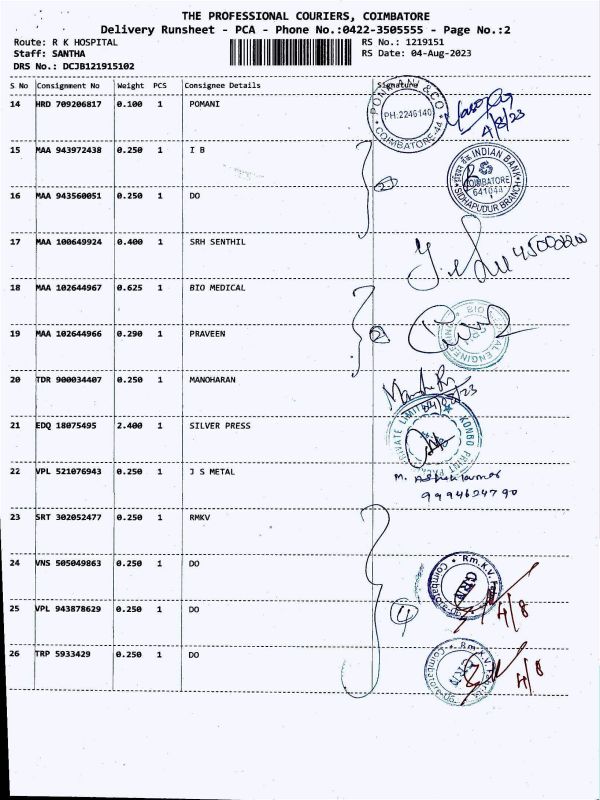 THE PROFESSIONAL COURIERS, COIMBATORE
Delivery Runsheet - PCA - Phone No.:0422-3505555 - Page No.:2
Route: R K HOSPITAL RS No.: 1219151
Staff: SANTHA RS Date: 04-Aug-2023
DRS No.: DCJB121915102
S No Consignment No Weight PCS Consignee Details Signature
14 HRD 709206817 0.100 1 POMANI
PH:2246140
COIMBATORE-44
4/8/23
15 MAA 943972438 0.250 1 I B
INDIAN BANK
COIMBATORE
641044
SIDHAPUDUR BRANCH
2
16 MAA 943560051 0.250 1 DO
17 MAA 100649924 0.400 1 SRH SENTHIL
18 MAA 102644967 0.625 1 BIO MEDICAL
2
19 MAA 102644966 0.290 1 PRAVEEN
20 TDR 900034407 0.250 1 MANOHARAN
21 EDQ 18075495 2.400 1 SILVER PRESS
22 VPL 521076943 0.250 1 J S METAL
9994624790
23 SRT 302052477 0.250 1 RMKV
24 VNS 505049863 0.250 1 DO
25 VPL 943878629 0.250 1 DO
4
4/8
26 TRP 5933429 0.250 1 DO
4/8